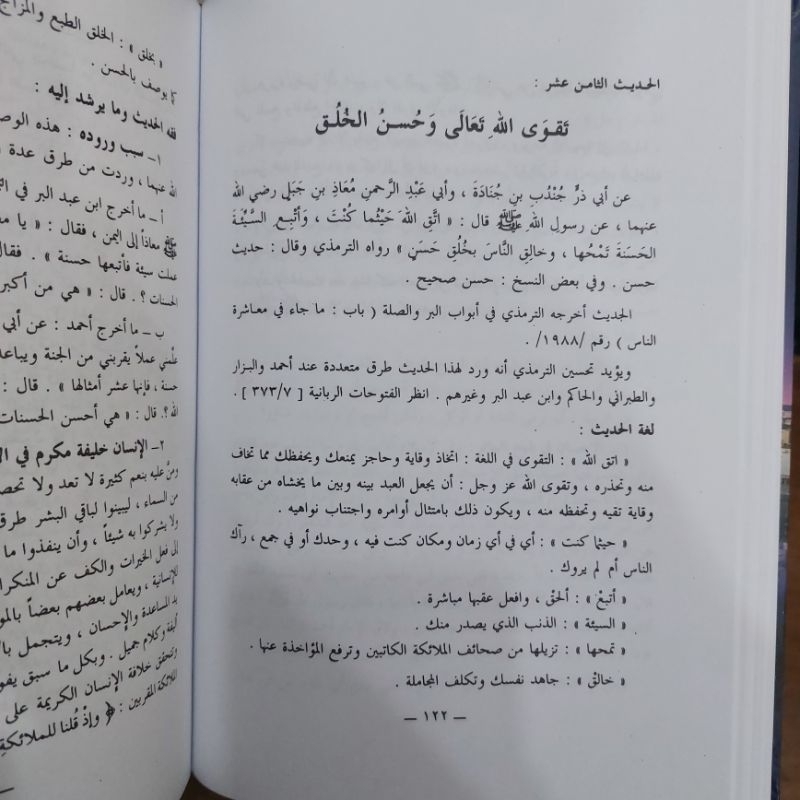 الحديث الثامن عشر :
تَقوَى اللهِ تَعَالَى وَحُسنُ الخُلُق
عن أبي ذرٍّ جُنْدُبِ بنِ جُنَادَة ، وأبي عَبْدِ الرَّحمنِ مُعَاذِ بنِ جَبَلٍ رضي الله
عنهما ، عن رسولِ اللهِ ﷺ قال : « اتَّقِ اللهَ حَيْثُما كُنْتَ ، وَأَتْبِعِ السَّيِّئَةَ
الحَسَنَةَ تَمْحُها ، وخالِقِ النَّاسَ بخُلُقٍ حَسَنٍ » رواه الترمذي وقال : حديث
حسن . وفي بعض النسخ : حسن صحيح .
الحديث أخرجه الترمذي في أبواب البر والصلة ( باب : ما جاء في معاشرة
الناس ) رقم /١٩٨٨/.
ويؤيد تحسين الترمذي أنه ورد لهذا الحديث طرق متعددة عند أحمد والبزار
والطبراني والحاكم وابن عبد البر وغيرهم . انظر الفتوحات الربانية [ ٣٧٣/٧ ] .
لغة الحديث :
« اتق الله » : التقوى في اللغة : اتخاذ وقاية وحاجز يمنعك ويحفظك مما تخاف
منه وتحذره ، وتقوى الله عز وجل : أن يجعل العبد بينه وبين ما يخشاه من عقابه
وقاية تقيه وتحفظه منه ، ويكون ذلك بامتثال أوامره واجتناب نواهيه .
« حيثما كنت » : أي في أي زمان ومكان كنت فيه ، وحدك أو في جمع ، رآك
الناس أم لم يروك .
« أتبعْ » : ألحقْ ، وافعل عقبها مباشرة .
« السيئة » : الذنب الذي يصدر منك .
« تمحها » : تزيلها من صحائف الملائكة الكاتبين وترفع المؤاخذة عنها .
« خالق » : جاهد نفسك وتكلف المجاملة .
— ١٢٢ —
« بخلق » : الخلق الطبع والمزاج
كما يوصف بالحسن .
فقه الحديث وما يرشد إليه :
١ـ سبب وروده : هذه الوص
الله عنهما ، وردت من طرق عدة
أ ـ ما أخرج ابن عبد البر في
ﷺ معاذاً إلى اليمن ، فقال : « يا
عملت سيئة فأتبعها حسنة » . فقال
الحسنات ؟ . قال : « هي من أكبر
ب ـ ما أخرج أحمد : عن أبي
علّمني عملاً يقربني من الجنة ويباعد
حسنة ، فإنها عشر أمثالها » . قال :
الله ؟. قال : « هي أحسن الحسنات
٢ـ الإنسان خليفة مكرم في
ومنَّ عليه بنعم كثيرة لا تعد ولا تحص
من السماء ، ليبينوا لباقي البشر طرق
ولا يشركوا به شيئاً ، وأن ينفذوا ما
إلى فعل الخيرات والكف عن المنكرا
للإنسانية ، ويعامل بعضهم بعضاً بالمو
يد المساعدة والإحسان ، ويتجمل
وكلام جميل . وبكل ما سبق يفو
وتتحقق خلافة الإنسان الكريمة على
الملائكة المقربين : ﴿ وإذْ قُلنا للملائكةِ